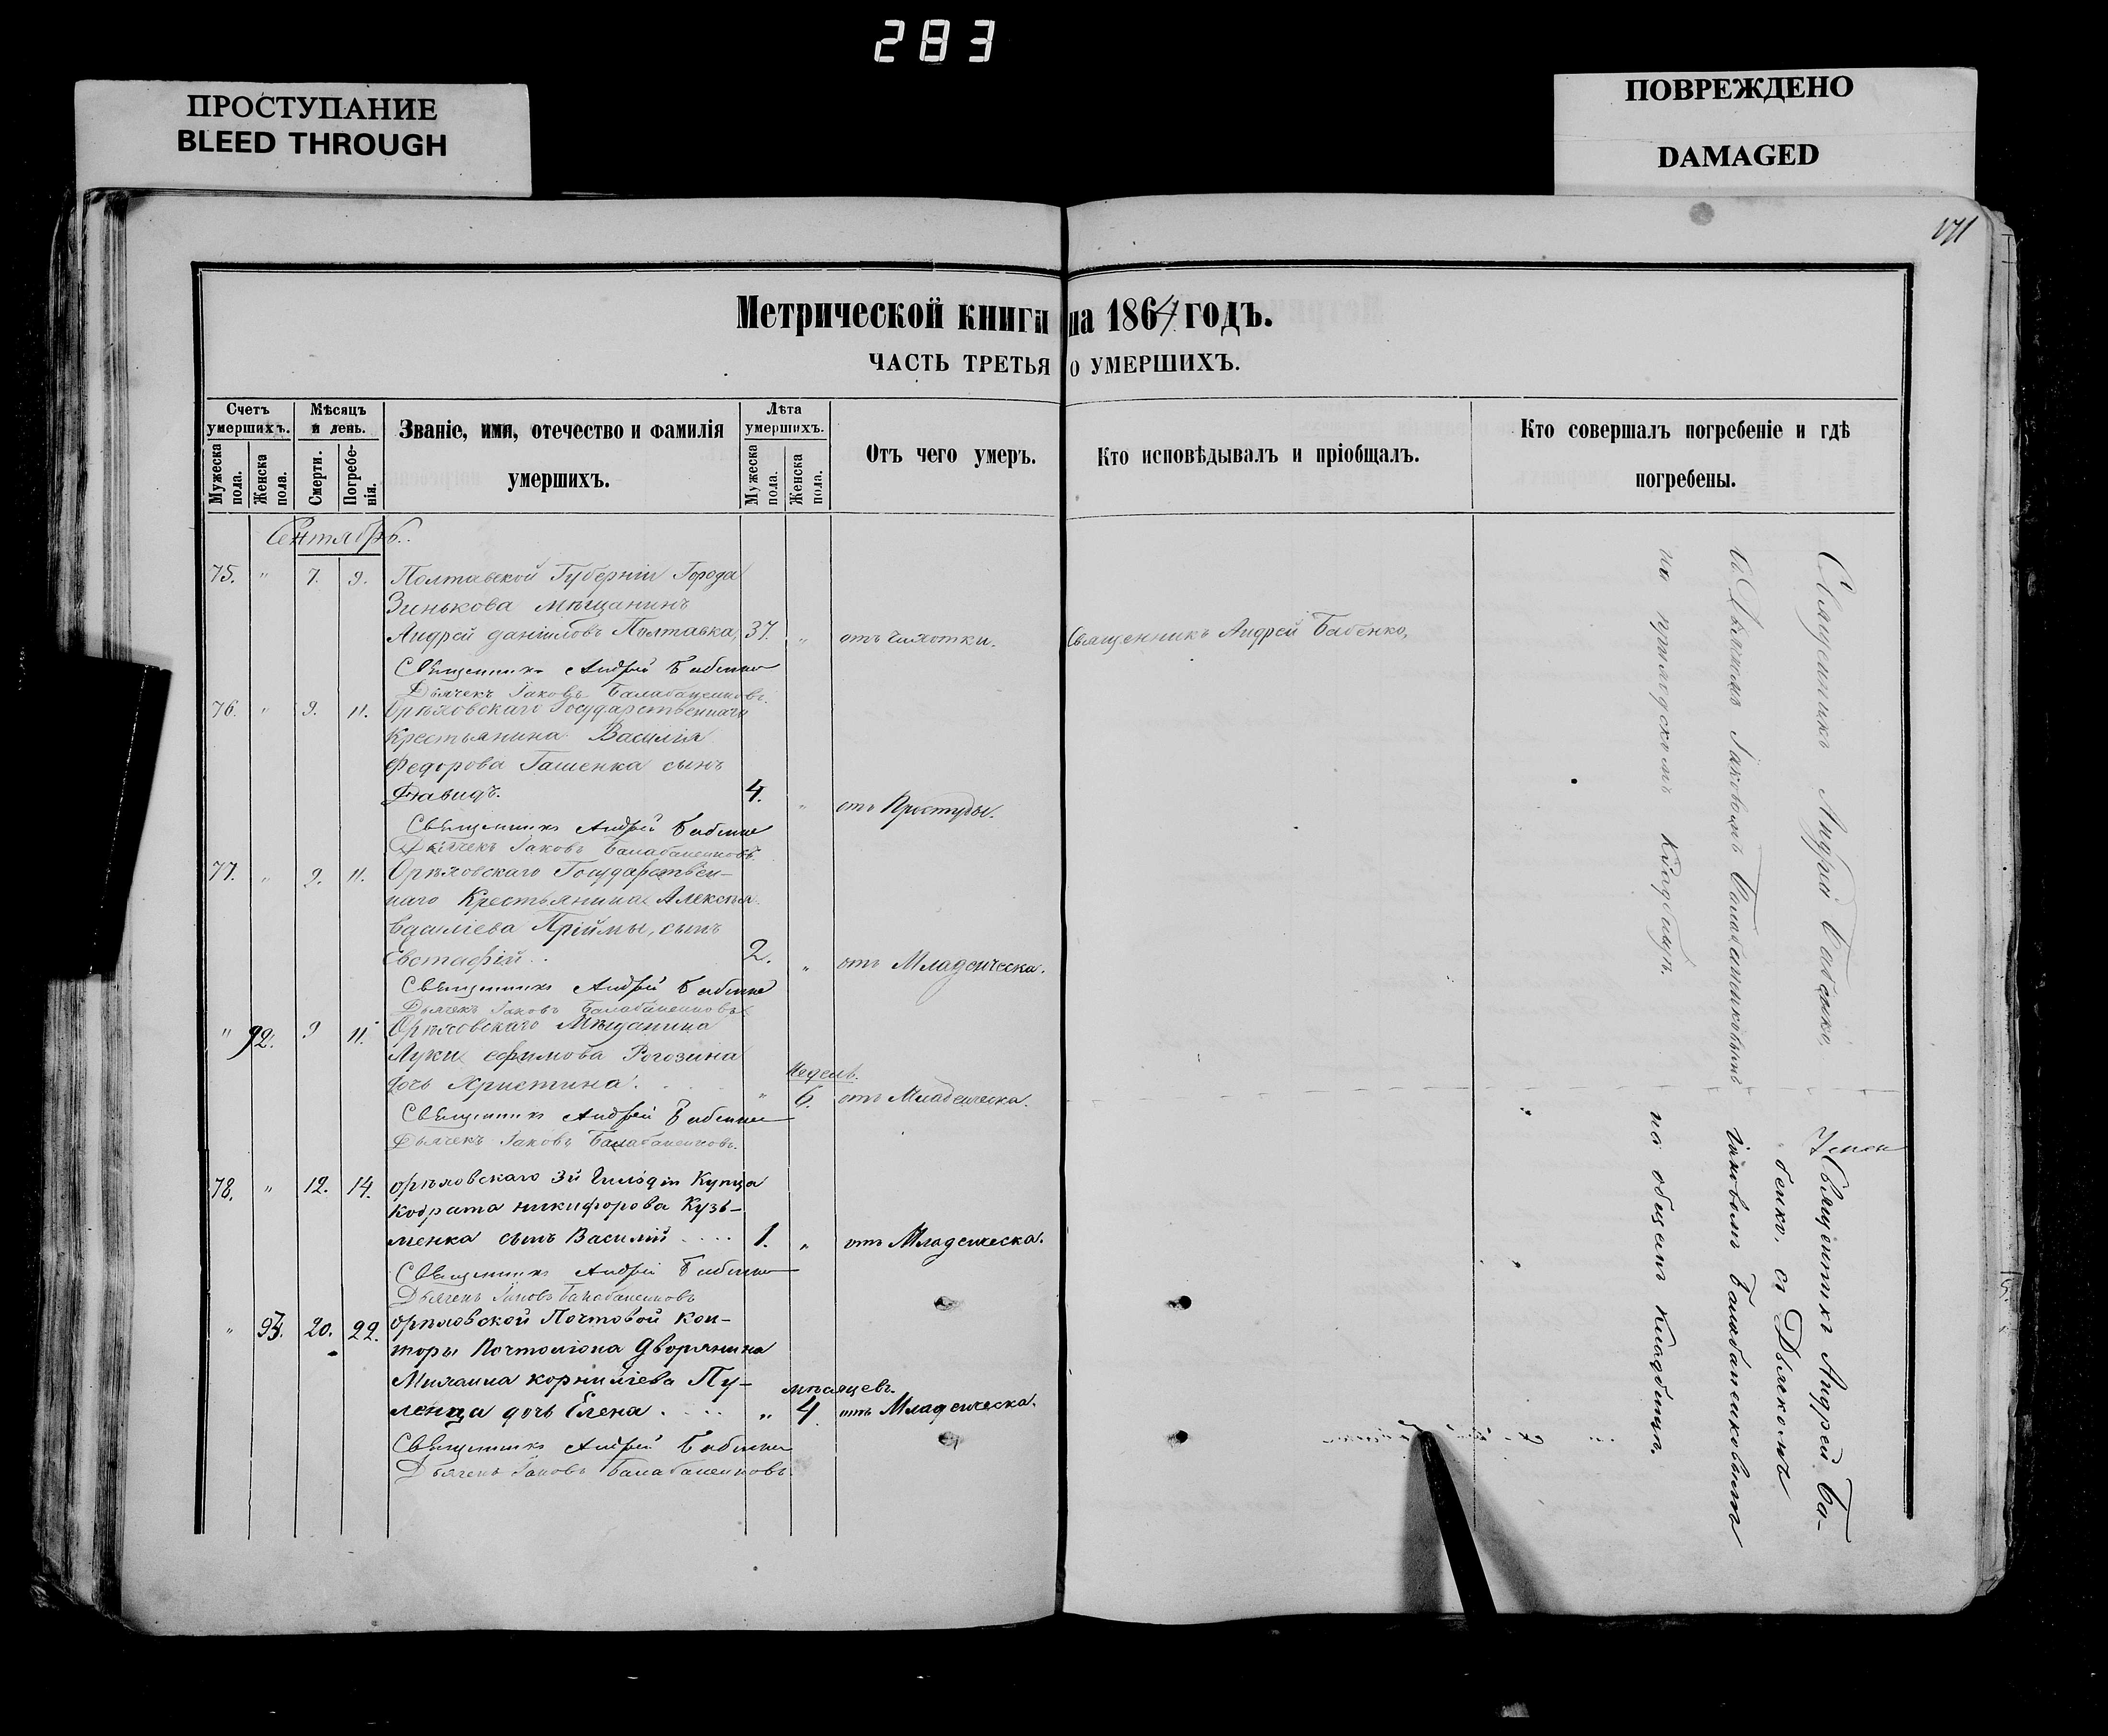 283
ПРОСТУПАНИЕ
BLEED THROUGH
ПОВРЕЖДЕНО
DAMAGED
171
Метрической книги на 1864 годъ.
ЧАСТЬ ТРЕТЬЯ О УМЕРШИХЪ.
Счетъ умершихъ.
Мужеска пола.
Женска пола.
Мѣсяцъ и день.
Смерти.
Погребенія.
Званіе, имя, отечество и фамилія
умершихъ.
Лѣта умершихъ.
Мужеска пола.
Женска пола.
Отъ чего умеръ.
Кто исповѣдывалъ и пріобщалъ.
Кто совершалъ погребеніе и гдѣ
погребены.
Сентябрь.
75. " 7. 9. Полтавской Губерніи Города
Зинькова мѣщанинъ
Андрей Даніиловъ Полтавка, 37. " отъ чихотки. Священникъ Андрей Бабенко,
Священникъ Андрей Бабенко
Дьячекъ Іаковъ Балабаненковъ.
76. " 9. 11. Орѣховскаго Государственнаго
Крестьянина Василія
Федорова Гашенка сынъ
Давидъ. 4. " отъ Простуды.
Священникъ Андрей Бабенко
Дьячекъ Іаковъ Балабаненковъ
77. " 9. 11. Орѣховскаго Государствен-
наго Крестьянина Алексѣя
Василіева Пріймы, сынъ
Евстафій.. 2. " отъ Младенческа.
Священникъ Андрей Бабенко
Дьячекъ Іаковъ Балабаненковъ
" 92. 9 11. Орѣховскаго Мѣщанина
Луки Ефимова Рогозина
дочь Христина. " Недель. 6. отъ Младенческа.
Священникъ Андрей Бабенко
Дьячекъ Іаковъ Балабаненковъ.
78. " 12. 14. Орѣховскаго 3й Гильдіи Купца
Кодрата Никифорова Кузь-
менка сынъ Василій .... 1. " отъ Младенческа.
Священникъ Андрей Бабенко
Дьячекъ Іаковъ Балабаненковъ
" 93. 20. 22. Орѣховской Почтовой Кон-
торы Почтоліона Дворянина
Михаила Корниліева Пу-
ленца дочь Елена .... " мѣсяцевъ. 4 отъ Младенческа.
Священникъ Андрей Бабенко
Дьячекъ Іаковъ Балабаненковъ.
Священникъ Андрей Бабенко,
съ Дьячкомъ Іаковымъ Балабаненковымъ
на приходскомъ Кладбищѣ.
Священникъ Андрей Ба-
бенко, съ Дьячкомъ
Іаковомъ Балабаненковымъ
на общемъ кладбищѣ.